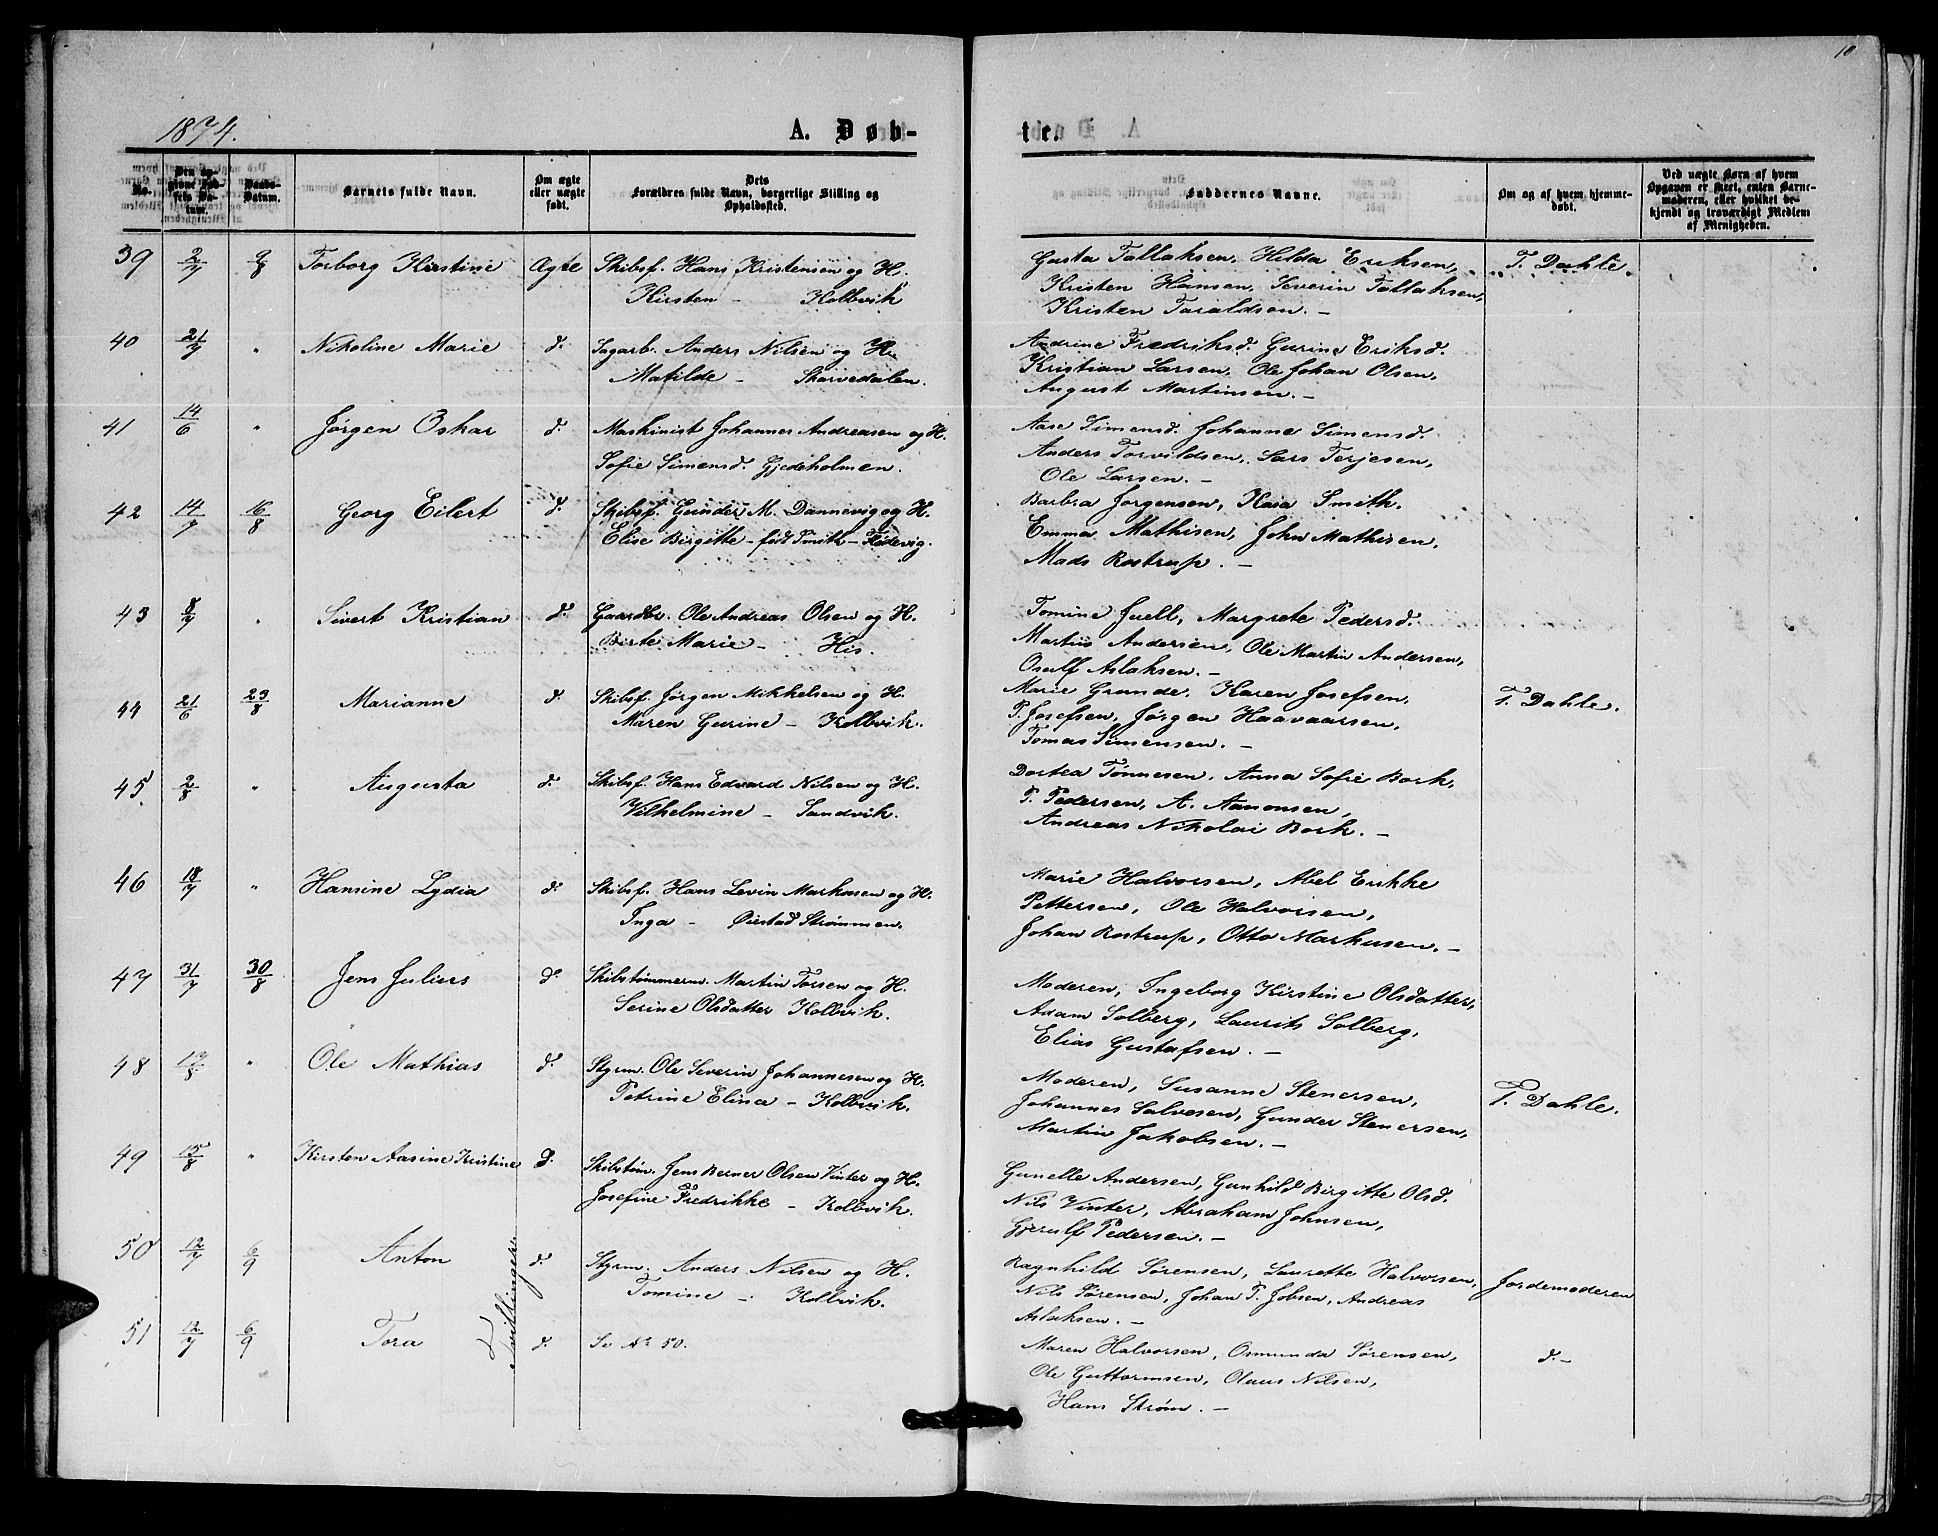 10
1874.
A. Døb-
te.
No.
Den opgivne Fødsels Datum.
Daabs-Datum.
Barnets fulde Navn.
Om ægte eller uægte født.
Dets Forældres fulde Navn, borgerlige Stilling og Opholdssted.
Faddernes Navne.
Om og af hvem hjemmedøbt.
Ved uægte Børn af hvem Opgaven er skeet, enten Barnemoderen, eller hvilket bekjendt og troværdigt Medlem af Menigheden.
39 2/7 2/8 Torborg Kirstine Ægte Skibsf. Hans Kristensen og H.
Kirsten - Kolbvik
Gusta Tallaksen, Hilda Eriksen, T. Dahle.
Kristen Hansen, Severin Tallaksen,
Kristen Taraldsen. -
40 21/7 " Nikoline Marie d. Sagarb. Anders Nilsen og H.
Matilde - Skarvedalen.
Andrine Fredriksd. Gurine Eriksd.
Kristian Larsen, Ole Johan Olsen,
August Martinsen. -
41 14/6 " Jørgen Oskar d. Maskinist Johannes Andreasen og H.
Sofie Simensd. Gjedeholmen.
Aase Simensd. Johanne Simensd.
Anders Torvildsen, Lars Terjesen,
Ole Larsen. -
42 14/7 16/8 Georg Eilert d. Skibsf. Gunder M. Dannevig og H.
Elise Birgitte - født Smith - Flødevig.
Barbra Jørgensen, Kaia Smith,
Emma Mathisen, John Mathisen,
Mads Rostrup. -
43 8/7 " Sivert Kristian d. Gaardbr. Ole Andreas Olsen og H.
Berte Marie - His.
Tomine Juell, Margrete Pedersd.
Martin Andersen, Ole Martin Andersen,
Osulf Aslaksen. -
44 21/6 23/8 Marianne d. Skibsf. Jørgen Mikkelsen og H.
Maren Gurine - Kolbvik.
Marie Grande, Karen Josefsen, T. Dahle.
P. Josefsen, Jørgen Haavaarsen,
Tomas Simensen. -
45 2/8 " Augusta d. Skibsf. Hans Edvard Nilsen og H.
Vilhelmine - Sandvik.
Dortea Tønnesen, Anna Sofie Bork,
P. Pedersen, A. Aanonsen,
Andreas Nikolai Bork. -
46 18/7 " Hansine Lydia d. Skibsf. Hans Levin Markusen og H.
Inga - Øiestad Strømmen.
Marie Halvorsen, Abel Erikke
Pettersen, Ole Halvorsen,
Johan Rostrup, Otto Markusen. -
47 31/7 30/8 Jens Julius d. Skibstømmerm. Martin Torsen og H.
Serine Olsdatter Kolbvik.
Moderen, Ingeborg Kirstine Olsdatter,
Adam Solberg, Laurits Solberg,
Elias Gustafsen. -
48 17/8 " Ole Mathias d. Styrm. Ole Severin Johannesen og H.
Petrine Elina - Kolbvik.
Moderen, Susanne Stenersen, T. Dahle.
Johannes Salvesen, Gunder Stenersen,
Martin Jakobsen. -
49 15/8 " Kirsten Aasine Kristine d. Skibstøm. Jens Berner Olsen Vinter og H.
Josefine Fredrikke - Kolbvik.
Gunelle Andersen, Gunhild Birgitte Olsd.
Nils Vinter, Abraham Johnsen,
Gjerulf Pedersen. -
50 12/7 6/9 Anton d. Styrm. Anders Nilsen og H.
Tomine - Kolbvik.
Ragnhild Sørensen, Laurette Halvorsen, Jordemoderen
Nils Sørensen, Johan P. Jobsen, Andreas
Aslaksen. -
Tvillinger
51 12/7 6/9 Tora d. Se No 50.
Maren Halvorsen, Osmunda Sørensen, d. -
Ole Guttormsen, Olaus Nilsen,
Hans Strøm. -